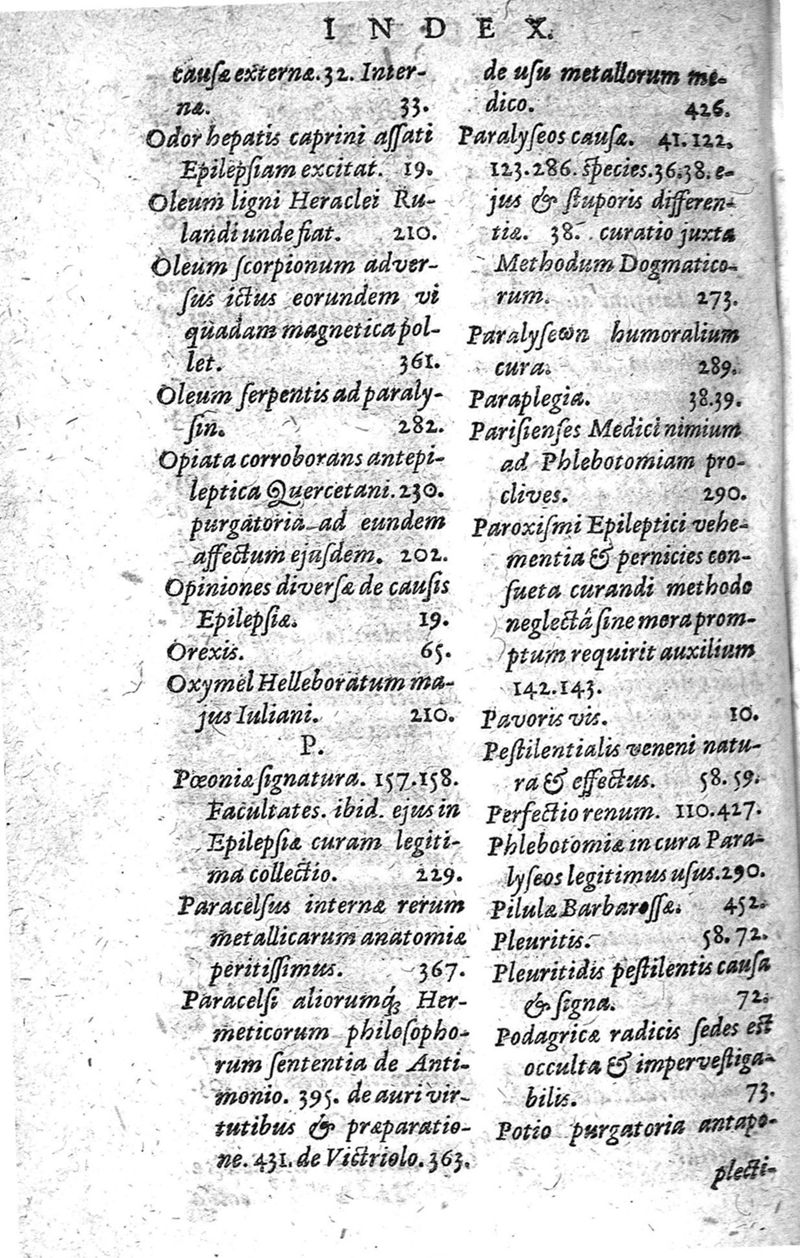 INDEX.
cauſæ externæ. 32. Inter-
næ. 33.
Odor hepatis caprini aſſati
Epilepſiam excitat. 19.
Oleum ligni Heraclei Ru-
landi unde fiat. 210.
Oleum ſcorpionum adver-
ſus ictus eorundem vi
quadam magnetica pol-
let. 361.
Oleum ſerpentis ad paraly-
ſin. 282.
Opiata corroborans antepi-
leptica Quercetani. 230.
purgatoria ad eundem
affectum ejuſdem. 202.
Opiniones diverſæ de cauſis
Epilepſiæ. 19.
Orexis. 65.
Oxymel Helleboratum ma-
jus Iuliani. 210.
P.
Pœoniæ ſignatura. 157.158.
Facultates. ibid. ejus in
Epilepſiæ curam legiti-
ma collectio. 229.
Paracelſus internæ rerum
metallicarum anatomiæ
peritiſſimus. 367.
Paracelſi aliorumq́; Her-
meticorum philoſopho-
rum ſententia de Anti-
monio. 395. de auri vir-
tutibus & præparatio-
ne. 431. de Victriolo. 363.
de uſu metallorum me-
dico. 426.
Paralyſeos cauſæ. 41.122.
123.286. ſpecies. 36.38. e-
jus & ſtuporis differen-
tiæ. 38. curatio juxta
Methodum Dogmatico-
rum. 273.
Paralyſeωn humoralium
cura. 289.
Paraplegiæ. 38.39.
Pariſienſes Medici nimium
ad Phlebotomiam pro-
clives. 290.
Paroxiſmi Epileptici vehe-
mentia & pernicies con-
ſueta curandi methodo
neglectâ ſine mora prom-
ptum requirit auxilium
142.143.
Pavoris vis. 10.
Peſtilentialis veneni natu-
ra & effectus. 58.59.
Perfectio renum. 110.427.
Phlebotomiæ in cura Para-
lyſeos legitimus uſus. 290.
Pilulæ Barbaroſſæ. 452.
Pleuritis. 58.72.
Pleuritidis peſtilentis cauſa
& ſigna. 72.
Podagricæ radicis ſedes eſt
occulta & imperveſtiga-
bilis. 73.
Potio purgatoria antapo-
plecti-